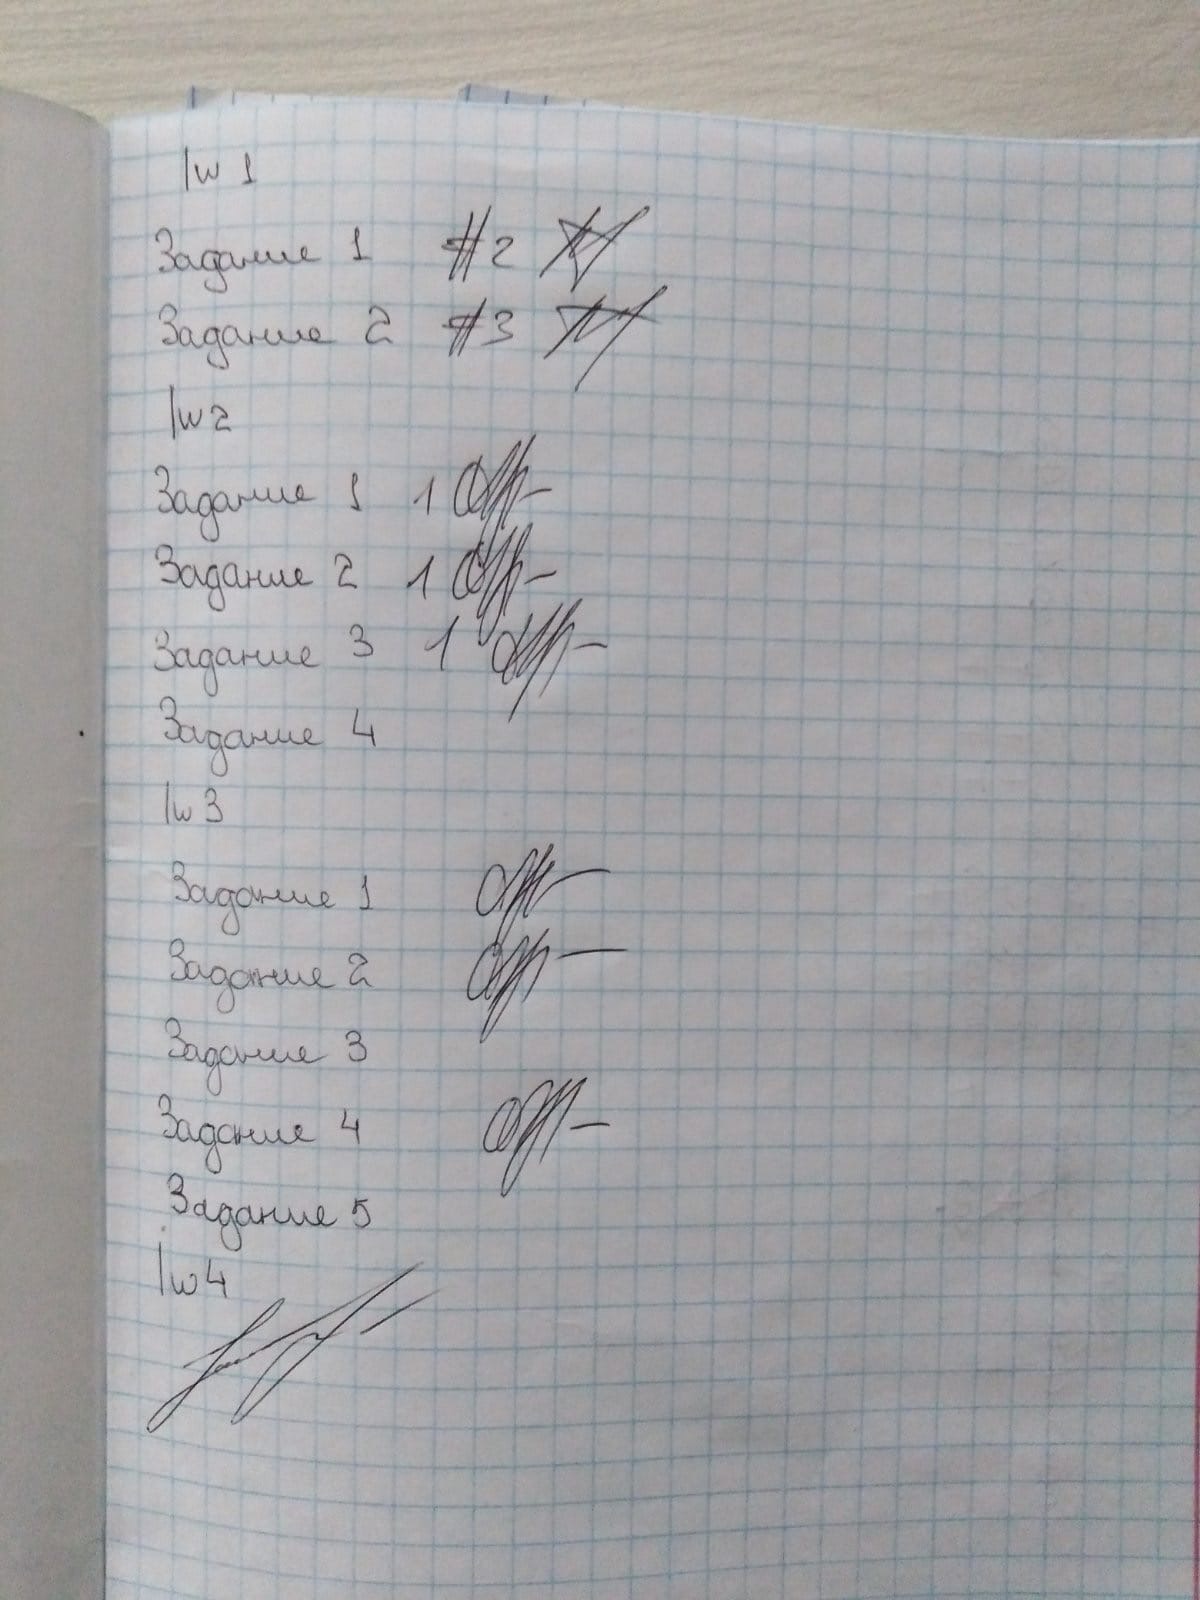 lw 1
Задание 1 #2
Задание 2 #3
lw 2
Задание 1 1
Задание 2 1
Задание 3 1
Задание 4
lw 3
Задание 1
Задание 2
Задание 3
Задание 4
Задание 5
lw 4